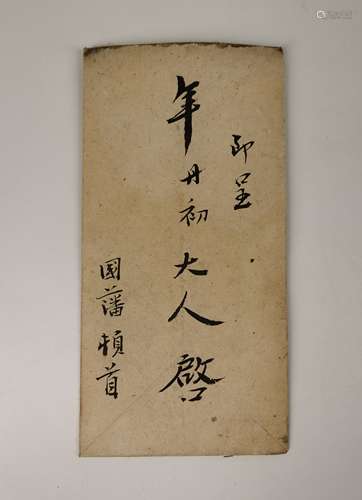 即呈
年丹初大人啓
國藩頓首